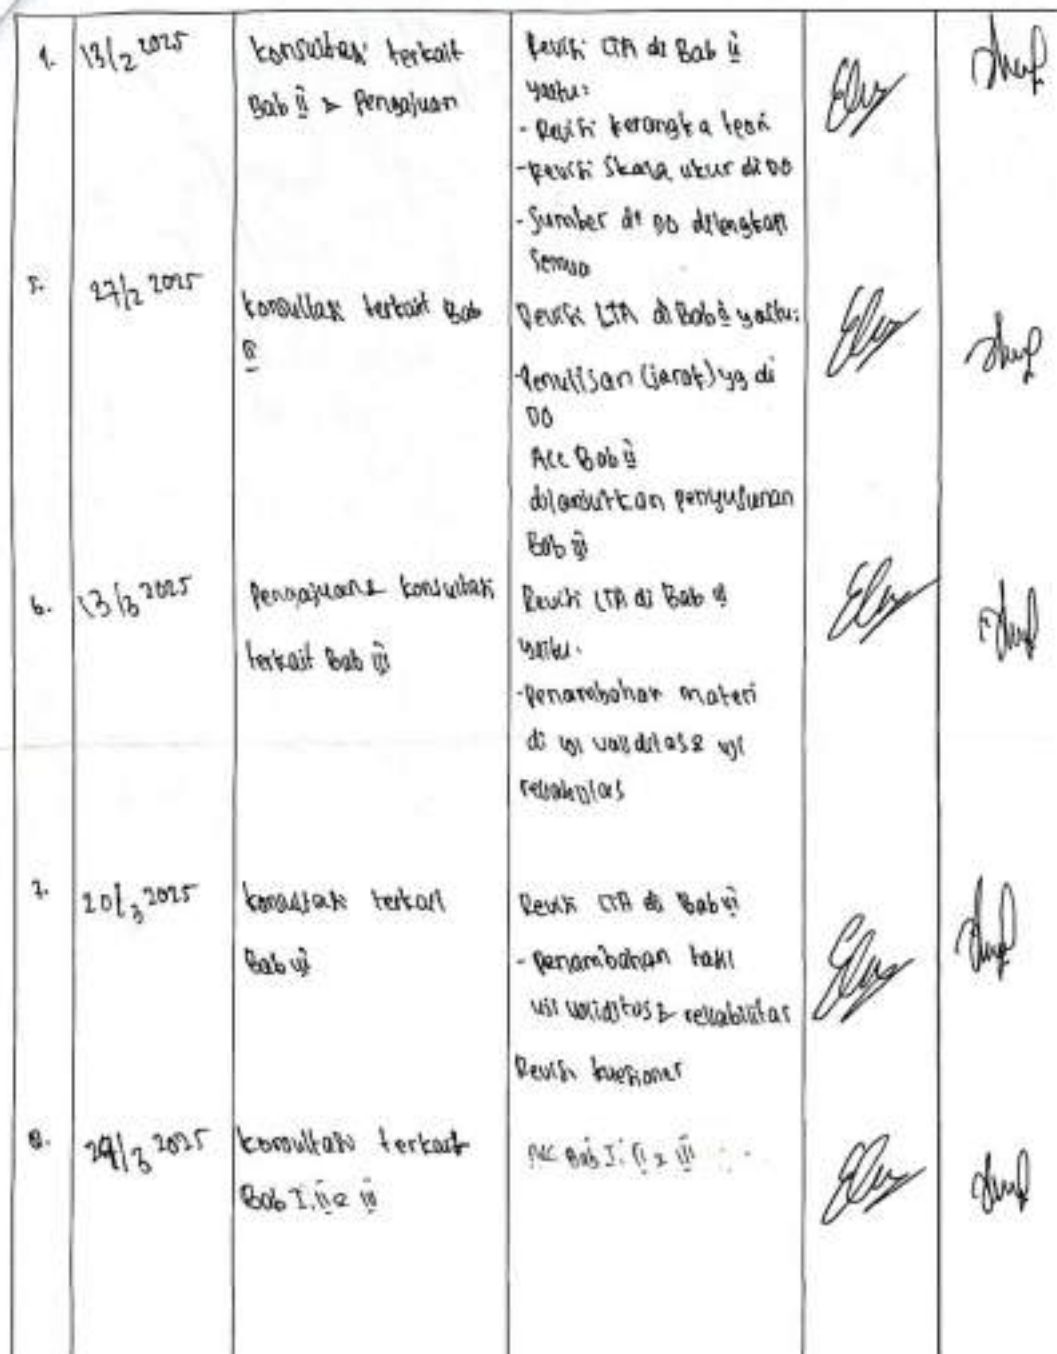 4. 13/2 2025
konsultasi terkait
Bab ii & Pengajuan
Revisi LTA di Bab ii
yaitu:
- Revisi kerangka teori
- Revisi Skala ukur di DO
- Sumber di DO dilengkapi
Semua
5. 27/2 2025
konsultasi terkait Bab
ii
Revisi LTA di Bab ii yaitu:
- Penulisan (jarak) yg di
DO
Acc Bab ii
dilanjutkan penyusunan
Bab iii
6. 13/3 2025
Pengajuan & konsultasi
terkait Bab iii
Revisi LTA di Bab iii
yaitu.
- penambahan materi
di uji validitas & uji
reliabilitas
7. 20/3 2025
konsultasi terkait
Bab iii
Revisi LTA di Bab iii
- penambahan hasil
uji validitas & reliabilitas
Revisi kuesioner
8. 3 2025
konsultasi terkait
Bab I, ii & iii
Acc Bab I, ii & iii